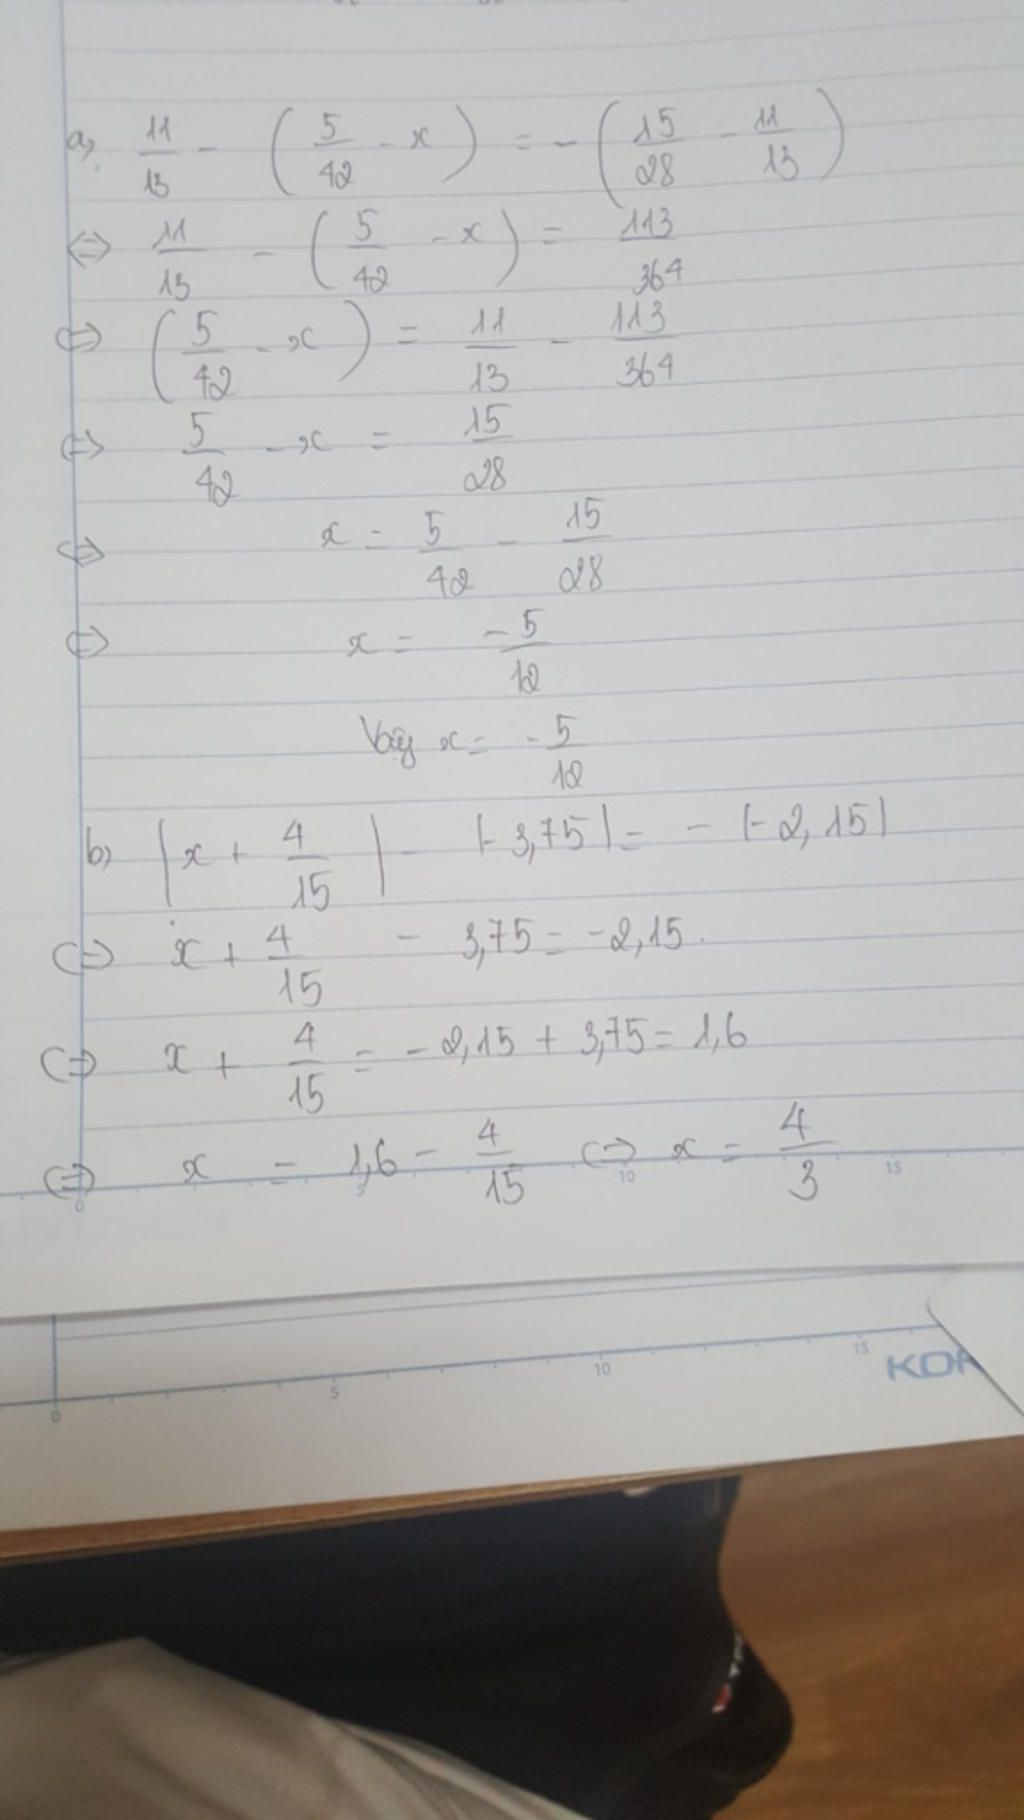 a) 11/13 - (5/42 - x) = - (15/28 - 11/13)
⇔ 11/13 - (5/42 - x) = 113/364
⇔ (5/42 - x) = 11/13 - 113/364
⇔ 5/42 - x = 15/28
⇔ x = 5/42 - 15/28
⇔ x = -5/12
Vậy x = -5/12
b) |x + 4/15| - |-3,75| = - |-2,15|
⇔ x + 4/15 - 3,75 = -2,15.
⇔ x + 4/15 = -2,15 + 3,75 = 1,6
⇔ x = 1,6 - 4/15 ⇔ x = 4/3
0 5 10 15
0 5 10 15